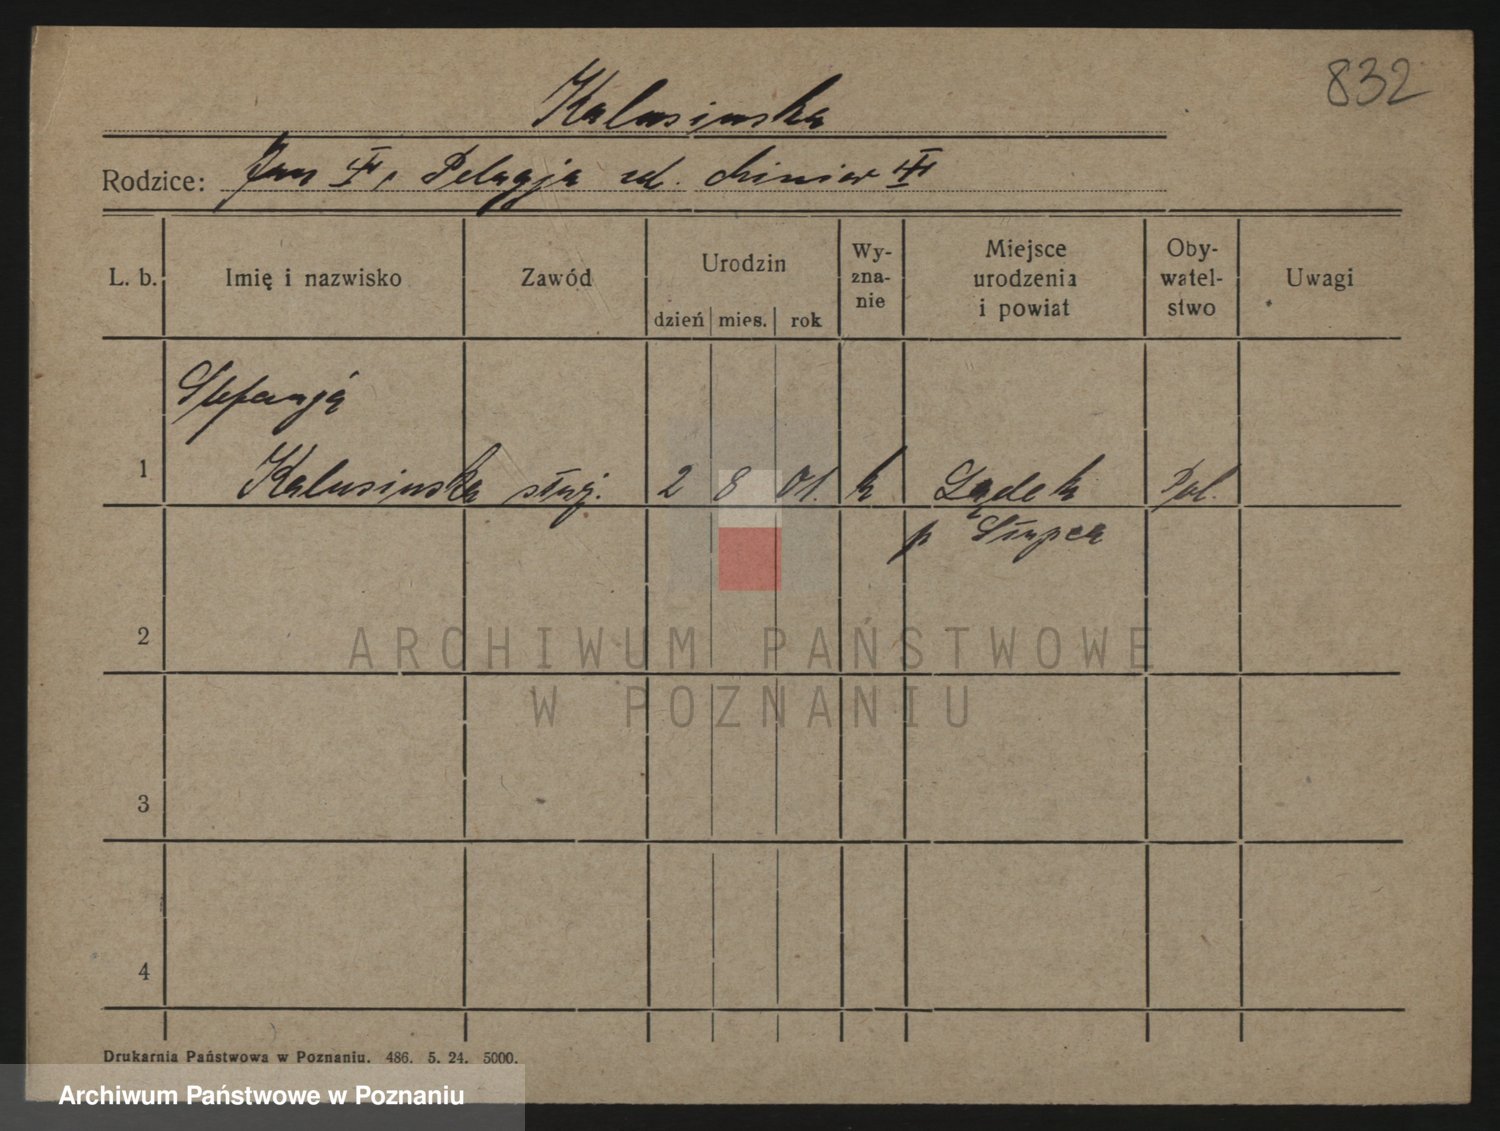 832
Kalusinska
Rodzice: Jan, Pelagja zd.
L. b. Imię i nazwisko Zawód Urodzin dzień mies. rok Wy-zna-nie Miejsce urodzenia i powiat Oby-watel-stwo Uwagi
Stefanja
1 Kalusinska służ. 2 8 01. k Lądek Pol.
p Słupca
2
3
4
ARCHIWUM PAŃSTWOWE
W POZNANIU
Drukarnia Państwowa w Poznaniu. 486. 5. 24. 5000.
Archiwum Państwowe w Poznaniu